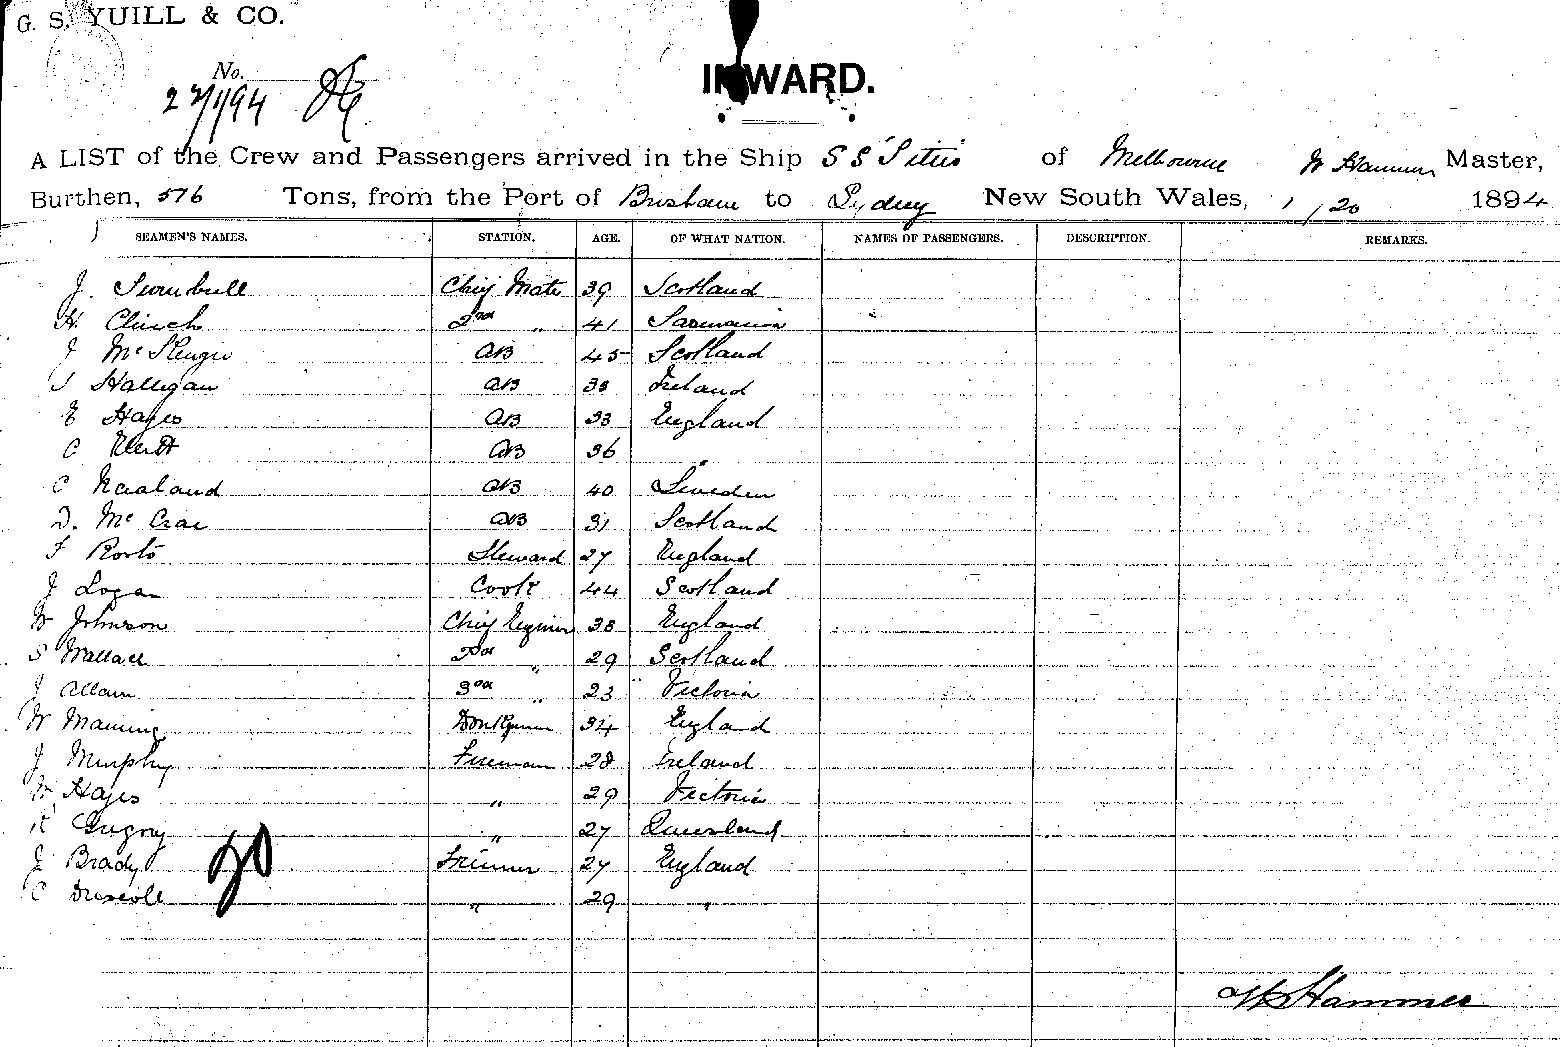 G. S. YUILL & CO.
No.
22/1/94
INWARD.
A LIST of the Crew and Passengers arrived in the Ship S S Titus of Melbourne W Hammer Master,
Burthen, 576 Tons, from the Port of Brisbane to Sydney New South Wales, 1/20 1894
SEAMEN'S NAMES. STATION. AGE. OF WHAT NATION. NAMES OF PASSENGERS. DESCRIPTION. REMARKS.
J. Turnbull Chief Mate 39 Scotland
H. Clinch 2nd " 41 Tasmania
J Mc AB 45 Scotland
Halligan AB 38 Ireland
E Hayes AB 33 England
C AB 36 "
C AB 40 Sweden
D. Mc Crae AB 31 Scotland
F Steward 27 England
J Logan Cook 44 Scotland
W Johnson Chief Engineer 38 England
S Wallace 2nd " 29 Scotland
J Allam 3rd " 23 Victoria
W Manning Donkeyman 34 England
J Murphy Fireman 28 Ireland
W Hayes " 29 Victoria
R Gregory " 27 Queensland
J Brady Trimmer 27 England
C Driscoll " 29 "
W Hammer